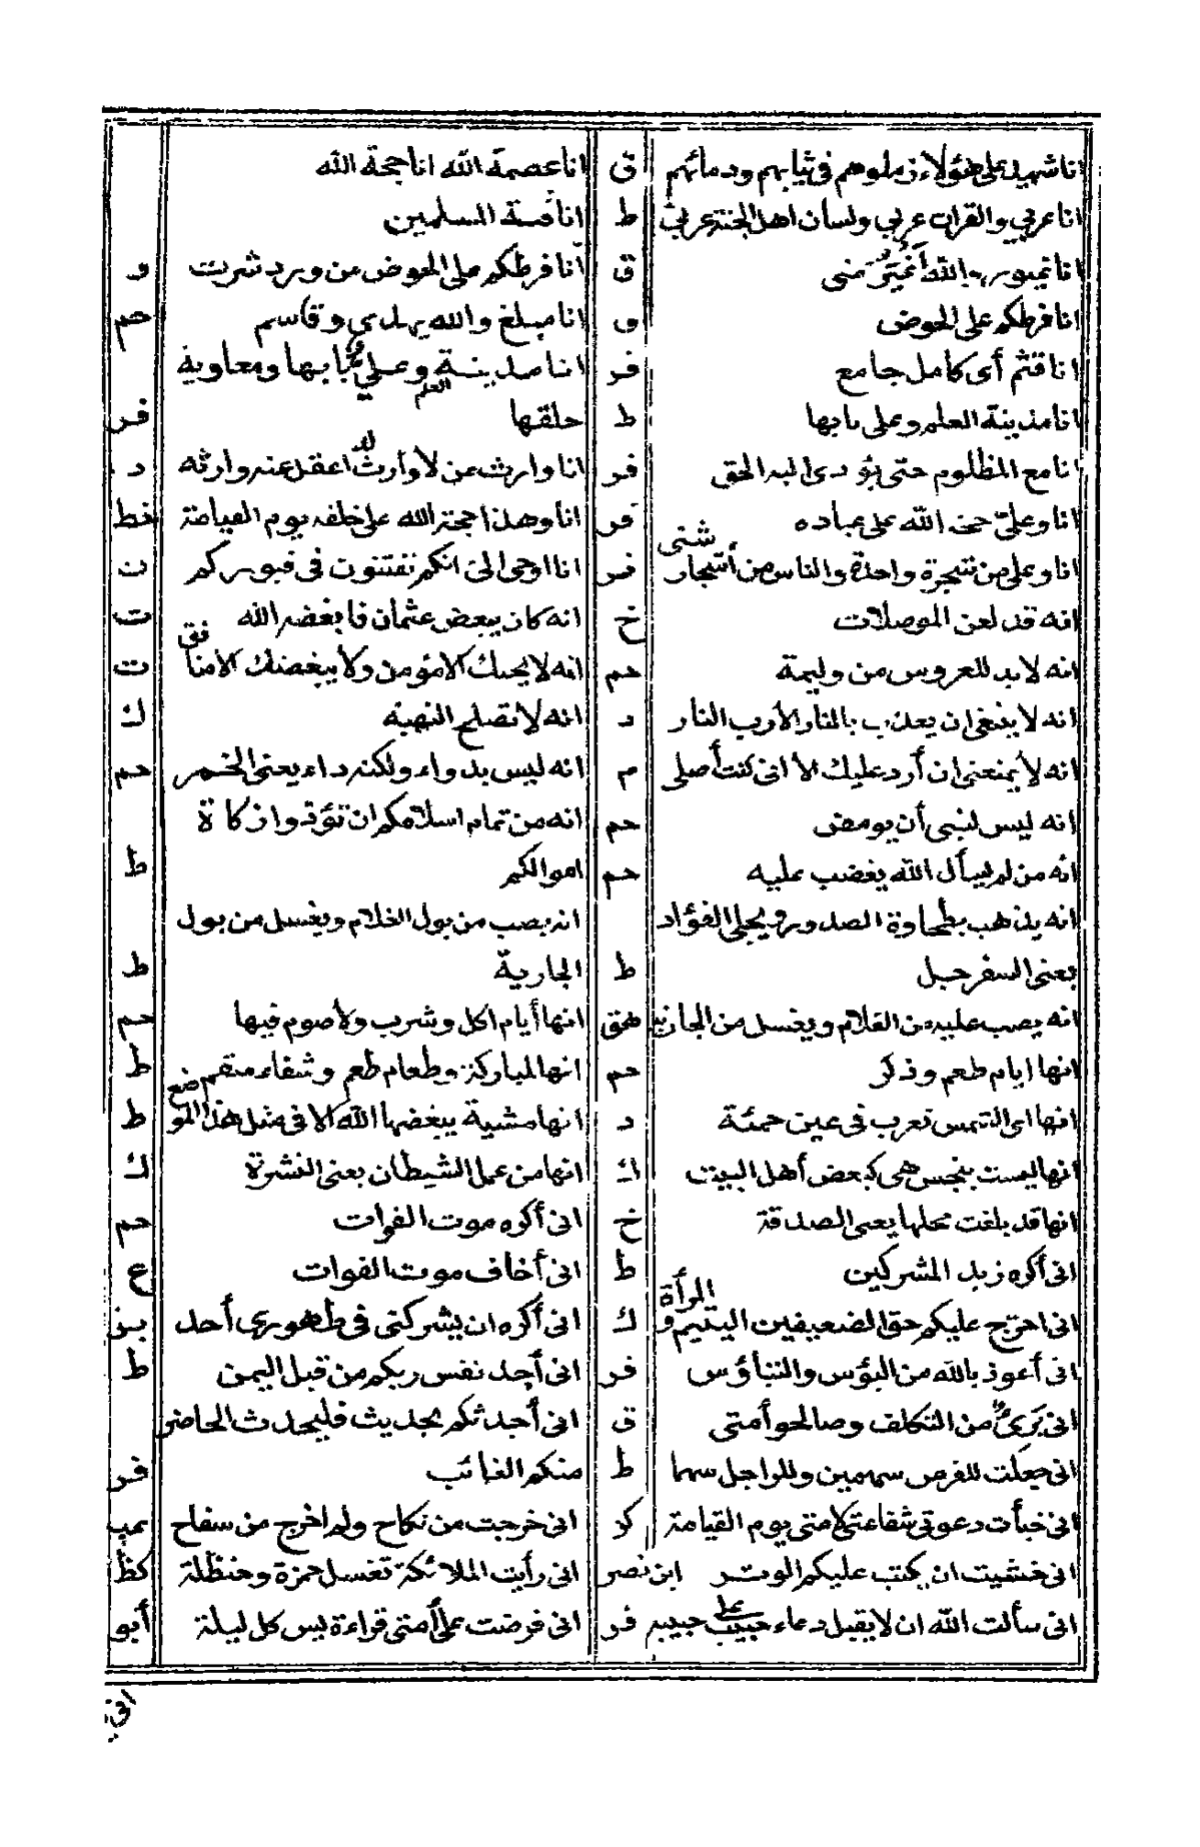 انا شهيد على هؤلاء زملوهم فى ثيابهم ودمائهم ق
انا عربي والقران عربي ولسان اهل الجنة عربي ط
انا غيور والله أغير منى ق
انا فرطكم على الحوض
انا قثم أى كامل جامع فر
انا مدينة العلم وعلى بابها ط
انا مع المظلوم حتى يؤدى اليه الحق فر
انا وعلىّ حجة الله على عباده فر
انا وعلى من شجرة واحدة والناس من أشجار شتى فر
انه قد لعن الموصلات خ
انه لابد للعروس من وليمة حم
انه لا ينبغى ان يعذب بالنار الا رب النار د
انه لا يمنعنى ان أرد عليك الا انى كنت أصلى م
انه ليس لنبى أن يومض حم
انه من لم يسأل الله يغضب عليه حم
انه يذهب بطخاوة الصدور ويجلى الفؤاد
يعنى السفرجل ط
انه يصب عليه من الغلام ويغسل من الجارية هق
انها ايام طعم وذكر حم
انها اى الشمس تغرب فى عين حمئة د
انها ليست بنجس هى كبعض أهل البيت ك
انها قد بلغت محلها يعنى الصدقة خ
انى أكره زبد المشركين ط
انى احرج عليكم حق الضعيفين اليتيم والمرأة ك
انى أعوذ بالله من البؤس والتباؤس فر
انى برئ من التكلف وصالحو أمتى ق
انى جعلت للفرس سهمين وللراجل سهما ط
انى خبأت دعوتى شفاعتى لامتى يوم القيامة كر
انى خشيت ان يكتب عليكم الوتر ابن نصر
انى سألت الله ان لا يقبل دعاء حبيب على حبيبه فر
انا عصمة الله انا حجة الله
انا فئة المسلمين
أنا فرطكم على الحوض من ورد شرب و
انا مبلغ والله يهدى وقاسم حم
انا مدينة العلم وعلي بابها ومعاوية
حلقها فر
انا وارث من لا وارث له اعقل عنه وارثه د
انا وهذا حجة الله على خلقه يوم القيامة خط
انا اوحى الىّ انكم تفتنون فى قبوركم ن
انه كان يبغض عثمان فابغضه الله ت
انه لا يحبك الا مؤمن ولا يبغضك الا منافق ت
انه لا تصلح النهبة ك
انه ليس بدواء ولكنه داء يعنى الخمر حم
انه من تمام اسلامكم ان تؤدوا زكاة
اموالكم ط
انه يصب من بول الغلام ويغسل من بول
الجارية ط
انها أيام اكل وشرب ولا صوم فيها حم
انها لمباركة وطعام طعم وشفاء سقم ط
انها مشية يبغضها الله الا فى مثل هذا الموضع ط
انها من عمل الشيطان يعنى النشرة ك
انى أكره موت الفوات حم
انى أخاف موت الفوات ع
انى أكره ان يشركنى فى طهورى أحد بز
انى أجد نفس ربكم من قبل اليمن ط
انى أحدثكم بحديث فليحدث الحاضر
منكم الغائب فر
انى خرجت من نكاح ولم اخرج من سفاح
انى رأيت الملائكة تغسل حمزة وحنظلة
انى فرضت على أمتى قراءة يس كل ليلة أبو
انى